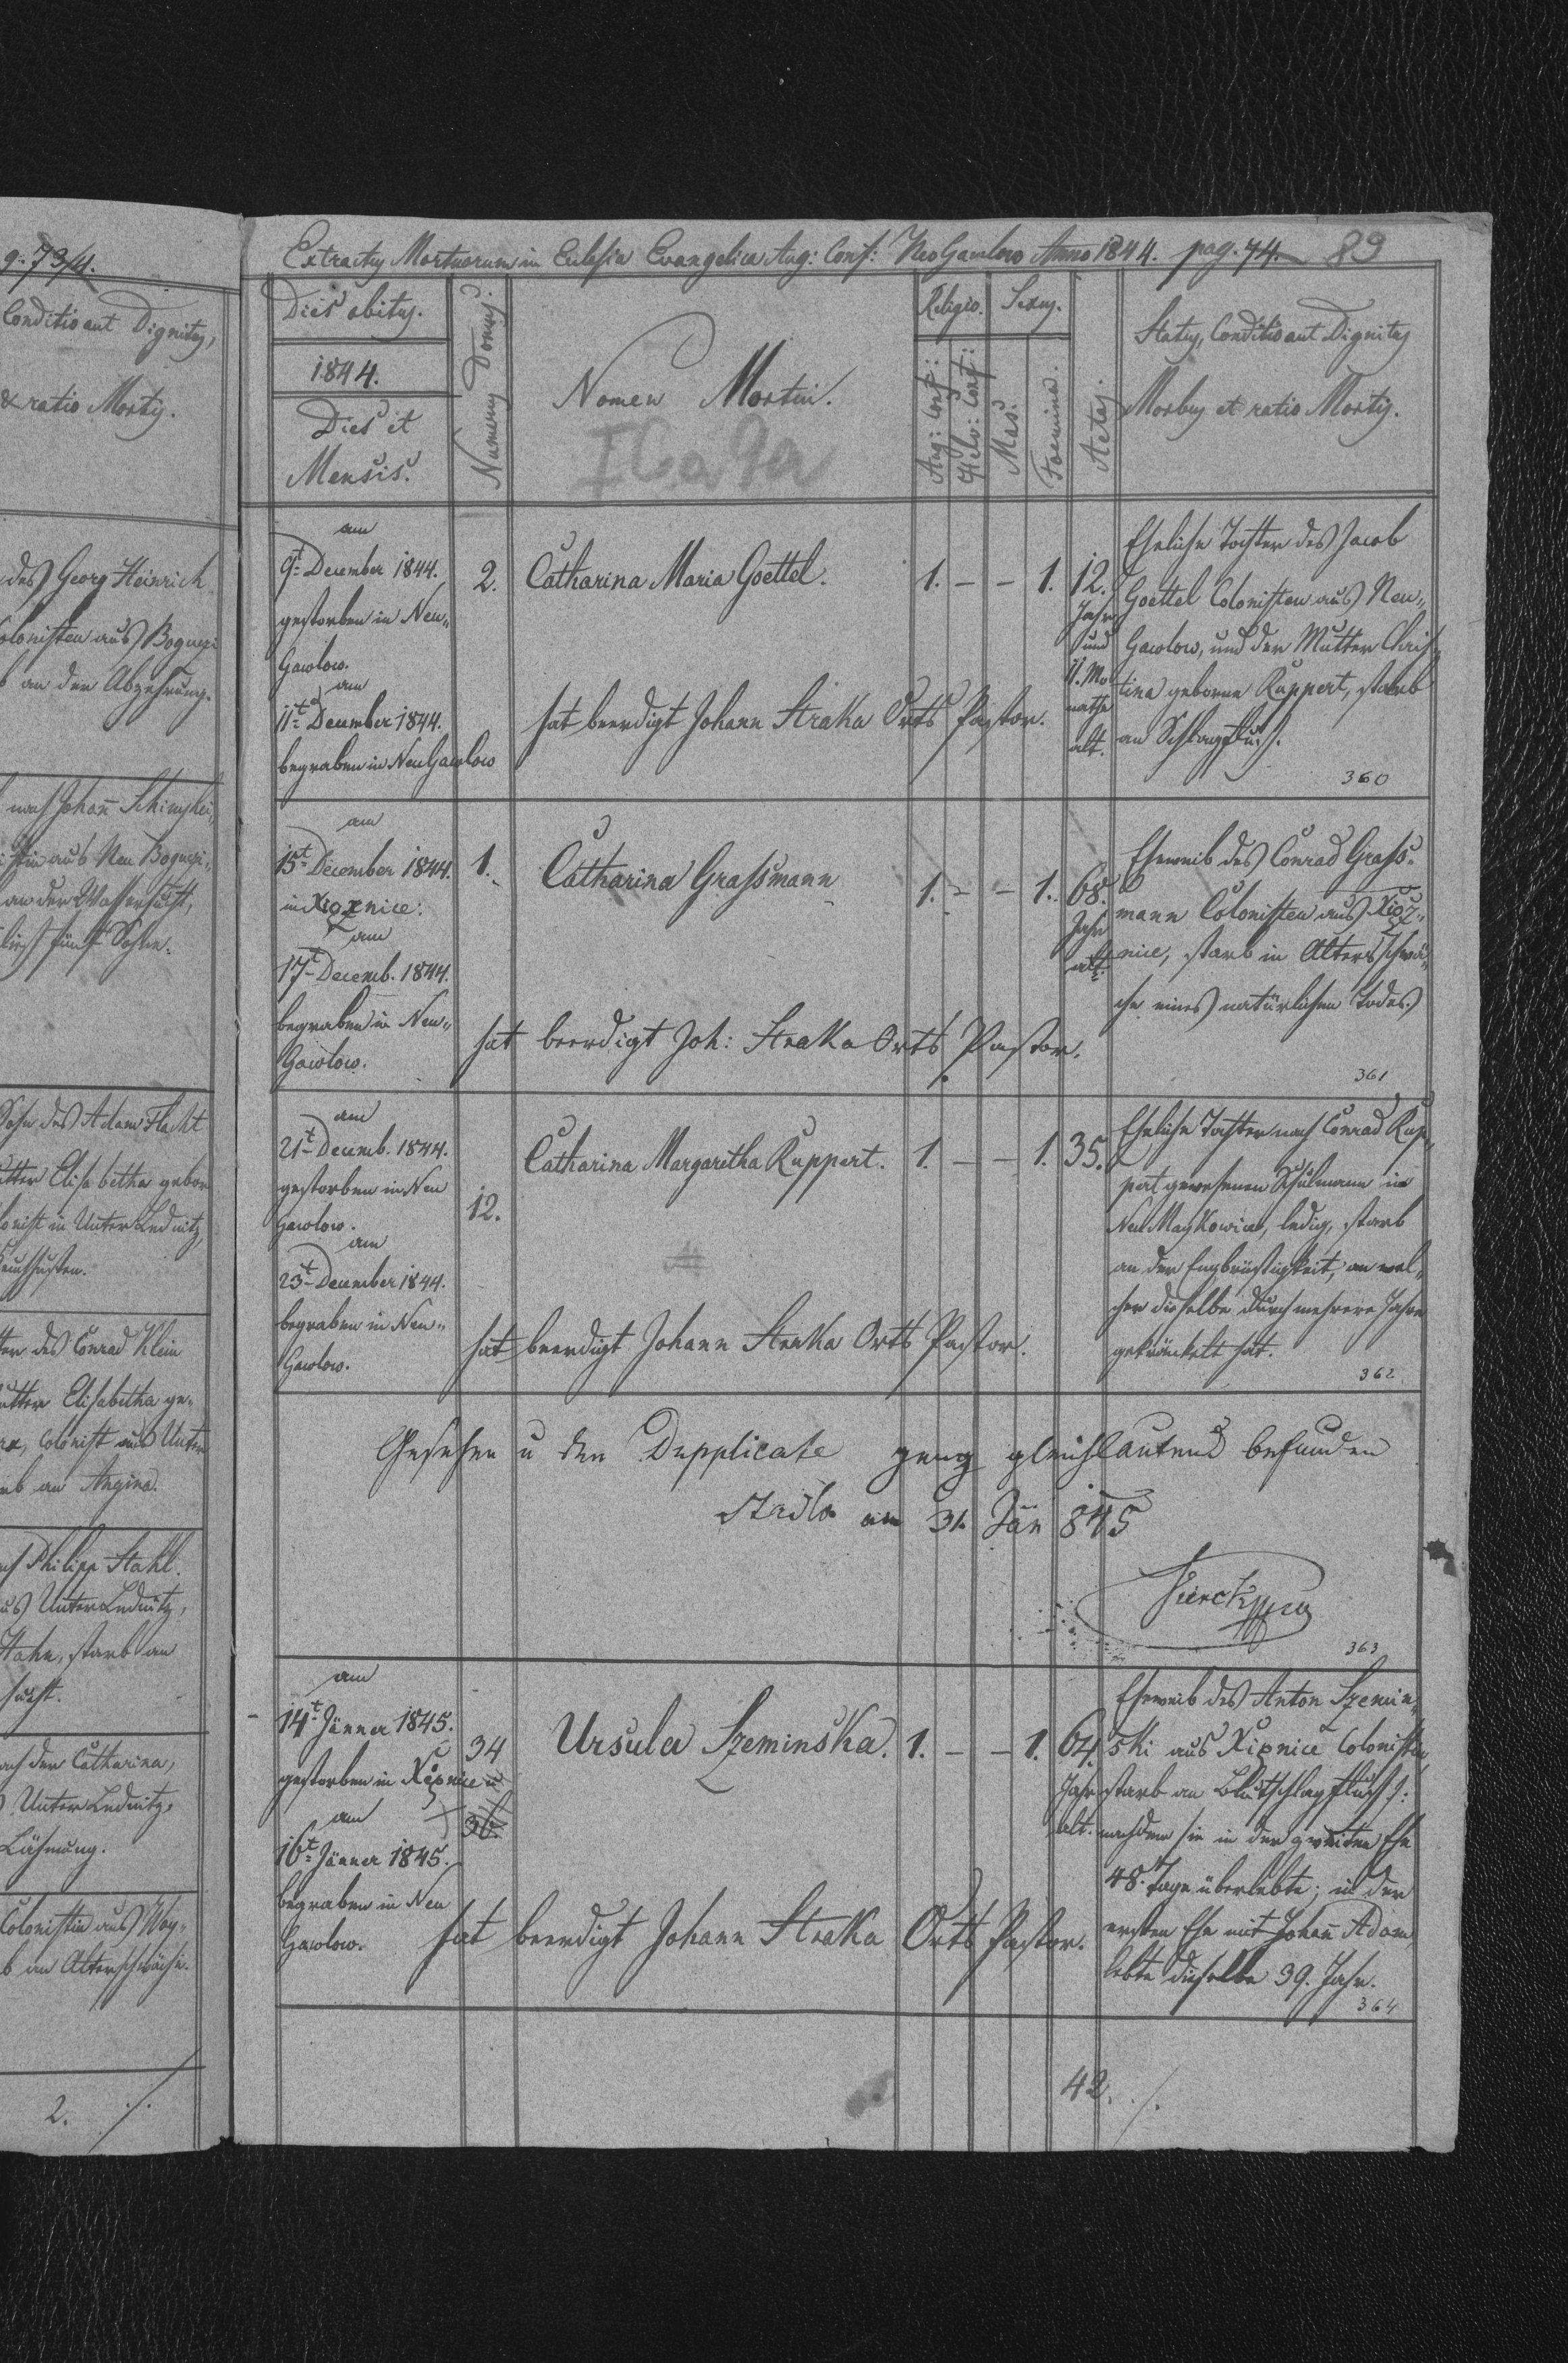 g. 73/4.
Conditio aut Dignitas,
& ratio Mortis.
des Georg Heinrich
Colonisten aus Bogucyi
an der Abzehrung.
nach Johañ
aus Neu Bogucyi„
an der Wassersucht,
fünf Söhne.
Sohn des Adam Flacht
Mutter Elisabetha gebor
Colonist in Unter Lednitz,
des Conrad Klein
Mutter Elisabetha ge„
Colonist aus Unter
starb an Angina.
Philipp Stahl.
aus Unter Lednitz,
Hahn, starb an
nach der Catharina,
Unter Lednitz,
Lähmung.
Colonistin aus Woy„
an Alterschwäche.
2. ·/·
Extractus Mortuorum in Eclesia Evangelica Aug: Conf: Neo Gawlovo Anno 1844. pag. 74. 89
Dies obitus.
1844.
Dies et
Mensis.
Numerus Domus.
Nomen Mortui.
Religio.
Aug: Conf::
Helv: Conf::
Sexus.
Mas.
Foemina.
Aetas.
Status, Conditio aut Dignitas
Morbus et ratio Mortis.
am
9t December 1844.
gestorben in Neu„
Gawlow.
am
11t December 1844.
begraben in Neu Gawlow
2. Catharina Maria Goettel. 1. – – 1. 12.
Jahr
und
11. Mo
nathe
alt.
hat beerdigt Johann Straka Orts Pastor.
Eheliche Tochter des Jacob
Goettel Colonisten aus Neu„
Gawlow, und der Mutter Chris„
tina geborne Ruppert, starb
an Schlagfluß.
360
am
15t December 1844.
in Xioznice.
am
17t Decemb. 1844.
begraben in Neu„
Gawlow.
1. Catharina Grassmann 1. – – 1. 68.
Jahr
alt.
hat beerdigt Joh: Straka Orts Pastor.
Eheweib des Conrad Grass„
mann Colonisten aus Xioz„
nice, starb in Altersschwä„
che eines natürlichen Todes.
361
am
21t Decemb. 1844.
gestorben in Neu
Gawlow.
am
23t December 1844.
begraben in Neu„
Gawlow.
12.
Catharina Margaretha Ruppert. 1. – – 1. 35.
hat beerdigt Johann Straka Orts Pastor.
Eheliche Tochter nach Conrad Rup„
pert gewesenen Schulmann in
Neu Maykowice, ledig, starb
an der Engbrüstigkeit, an wel„
cher dieselbe durch mehrere Jahre
gekränkelt hat.
362
Gesehen u den Dupplicate ganz gleichlautend befunden
Stadlo am 31. Jän 845
363
am
14t Jänner 1845.
gestorben in Xiżnice
am
16t Jänner 1845.
begraben in Neu
Gawlow.
34
36.
Ursula Szeminska. 1. – – 1. 64.
Jahr
alt.
hat beerdigt Johann Straka Orts Pastor.
Eheweib des Anton Szemin„
ski aus Xiżnice Colonisten,
starb an Blutschlagfluß:
nachdem sie in der zweiten Ehe
48. Tage überlebte; in der
ersten Ehe mit Johañ Adam,
lebte dieselbe 39. Jahr.
364
42. ·/.